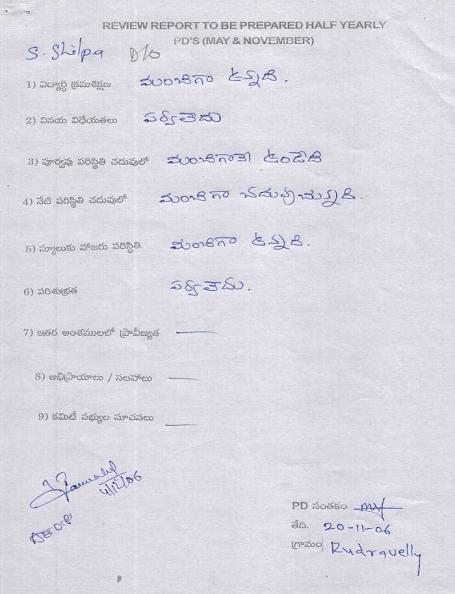 REVIEW REPORT TO BE PREPARED HALF YEARLY
PD'S (MAY & NOVEMBER)
S. Shilpa D/o
1) విద్యార్థి క్రమశిక్షణ మంచిగా ఉన్నది.
2) వినయ విధేయతలు పర్వాలేదు
3) పూర్వపు పరిస్థితి చదువులో మంచిగానే ఉండేది
4) నేటి పరిస్థితి చదువులో మంచిగా చదువుచున్నది.
5) స్కూలుకు హాజరు పరిస్థితి. మంచిగా ఉన్నది.
6) పరిశుభ్రత పర్వాలేదు.
7) ఇతర అంశములలో ప్రావీణ్యత
8) అభిప్రాయాలు / సలహాలు
9) కమిటీ సభ్యుల సూచనలు
4/12/06
PD సంతకం
తేది. 20-11-06
గ్రామం Rudravelly